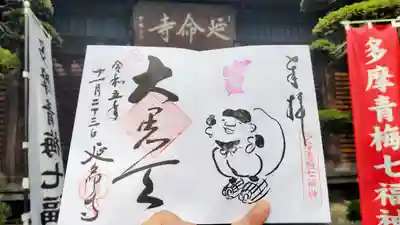 延命寺
多摩青梅七福神
多摩青梅七福神
奉拝
多摩青梅七福神
大黒天
令和五年
十一月二十三日
延命寺